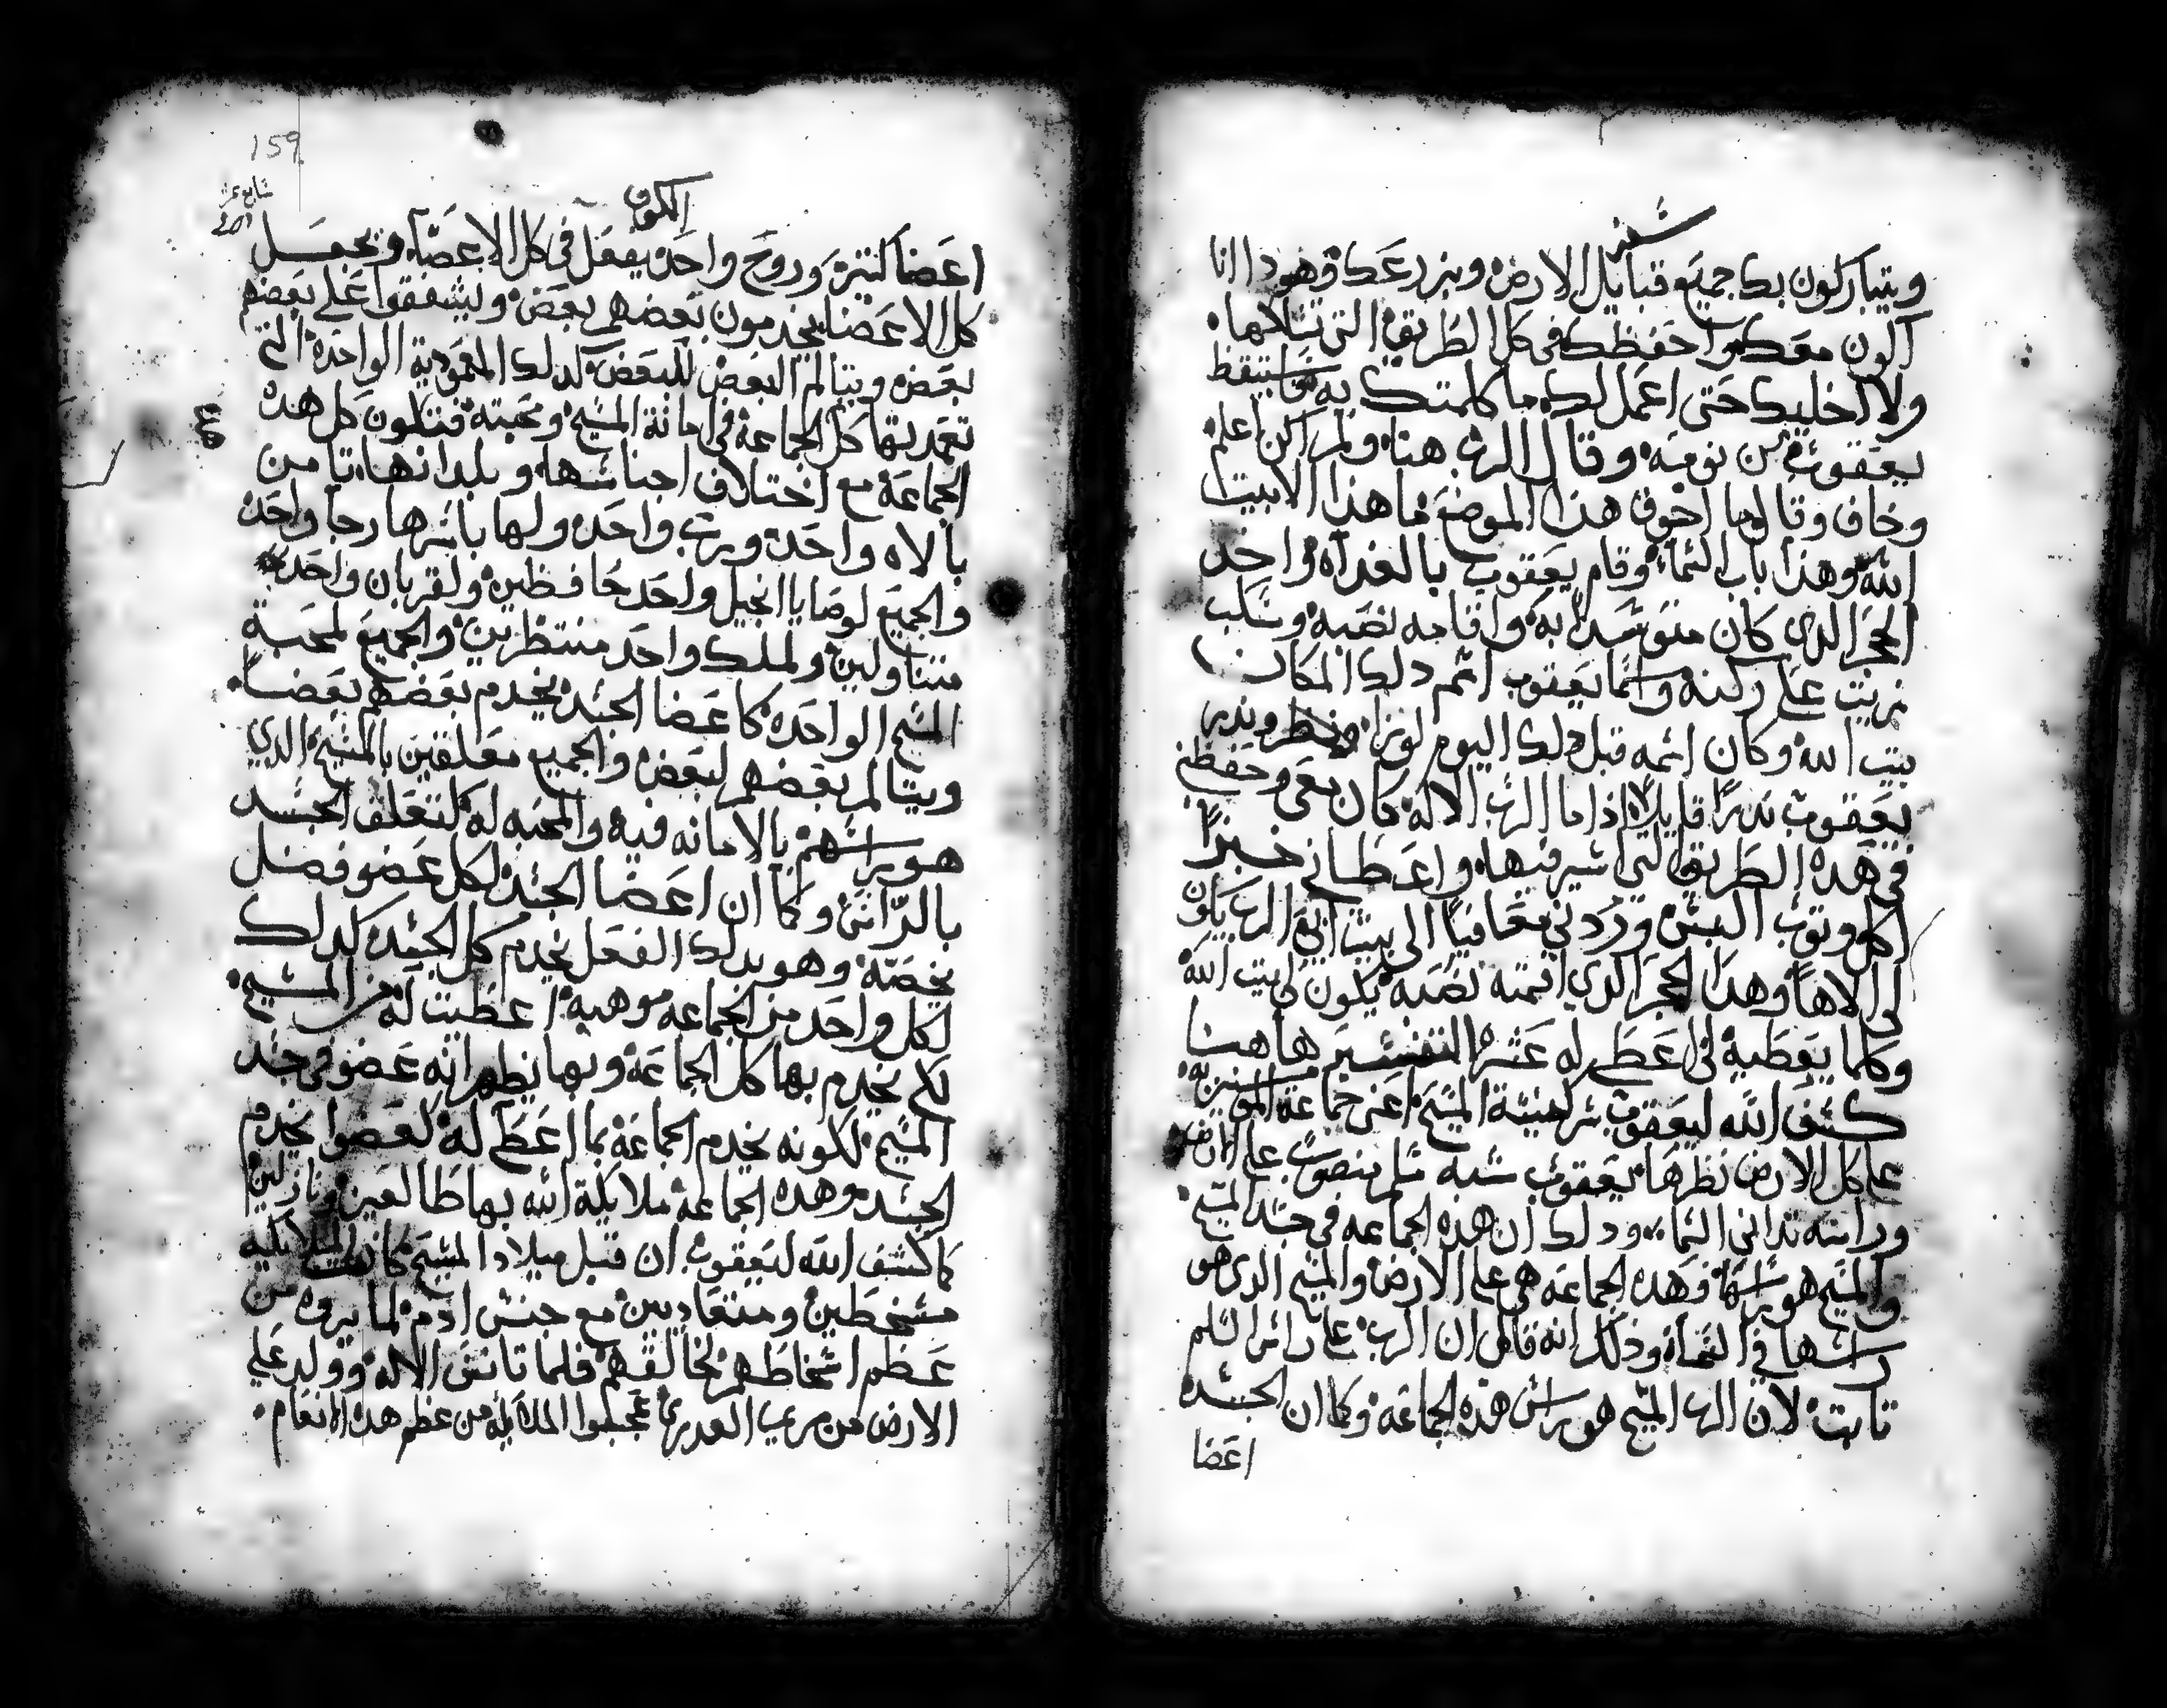 سفر
ويتباركون بك جميع قبايل الارض وبزرعك وهودا انا
اكون معك واحفظك في كل الطريق التي تسلكها
ولا اخليك حتى اعمل لك ما كلمتك به فاستيقظ
يعقوب من نومه وقال الرب هنا ولم اكن اعلم
وخاف وقال ما اخوف هذا الموضع ما هذا الا بيت
الله وهذا باب السماء وقام يعقوب بالغداه واخد
الحجر الدي كان متوسدا به واقامه نصبه وسكب
زيت على ركنه واسما يعقوب اسم دلك المكان
بيت الله وكان اسمه قبل دلك اليوم لوزا وندر
يعقوب ندرا قايلا اذا ما الرب الاله كان معي وحفظني
في هده الطريق التي اسير فيها واعطاني خبزا
اكل وتوب البس وردني معافيا الى بيت ابي الرب يكون
لي الاها وهدا الحجر الدي اقمته نصبه يكون لي بيت الله
وكلما يعطيه لي اعطي له عشره التفسير هاهنا
كشف الله ليعقوب سر كنيسة المسيح اعني جماعة المومنين به
على كل الارض نظرها يعقوب شبه سلم منصوب على الارض
وراسه تداني السماء ودلك ان هذه الجماعه في جسد المسيح
والمسيح هو راسها فهده الجماعه هي على الارض والمسيح الدي هو
راسها في السماء وذكر انه قال ان الرب على راس السلم
تابت لان الرب المسيح هو راس هذه الجماعة وكما ان الجسد
اعضا
159
الكون
اعضا كتيره وروح واحد يفعل في كل الاعضاء ويجعل
كل الاعضا يخدمون بعضهم بعض وليشفقوا على بعضهم
بعض ويتالم البعض للبعض كدلك المعمودية الواحدة التي
تعمد بها كل الجماعة في امانة المسيح ومحبته فتكون كل هده
الجماعة مع اختلاف اجناسها وبلدانها تامن
بالاه واحد ورب واحد ولها باسرها رجا واحد
والجميع لوصايا انجيل واحد حافظين ولقربان واحد
متناولين ولملك واحد منتظرين والجميع لمحبة
المسيح الواحده كاعضا الجسد يخدم بعضهم بعضا
ويتالم بعضهم لبعض والجميع معلقين بالمسيح الدي
هو راسهم بالامانه فيه والمحبه له كتعلق الجسد
بالراس وكما ان اعضا الجسد لكل عضو فضل
يخصه وهو بدلك الفعل يخدم كل الجسد كدلك
لكل واحد من الجماعه موهبه اعطيت له من المسيح
لكي يخدم بها كل الجماعة وبها يظهر انه عضو في جسد
المسيح لكونه يخدم الجماعة بما اعطي له كعضوا يخدم
الجسد وهده الجماعة ملايكة الله بها طالعين ونازلين
كما كشف الله ليعقوب ان قبل ميلاد المسيح كانت الملايكه
مسخطين ومتعاديين مع جنس ادم لما يروه من
عظم اسخاطهم لخالقهم فلما تانس الاله وولد على
الارض من مريم العدرى عجبوا الملايكه من عظم هدا الانعام